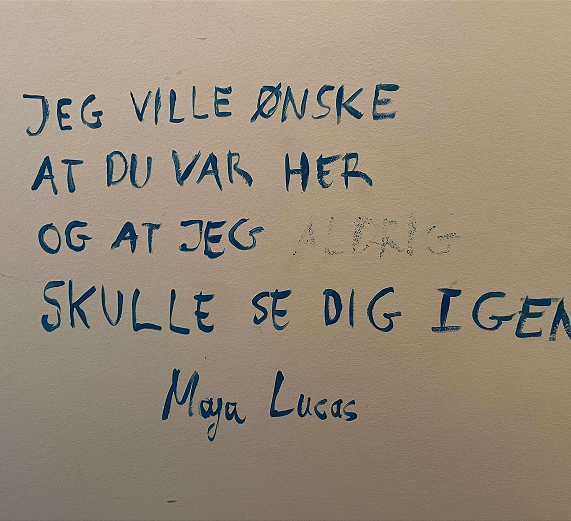 JEG VILLE ØNSKE
AT DU VAR HER
OG AT JEG ALDRIG
SKULLE SE DIG IGEN
Maja Lucas